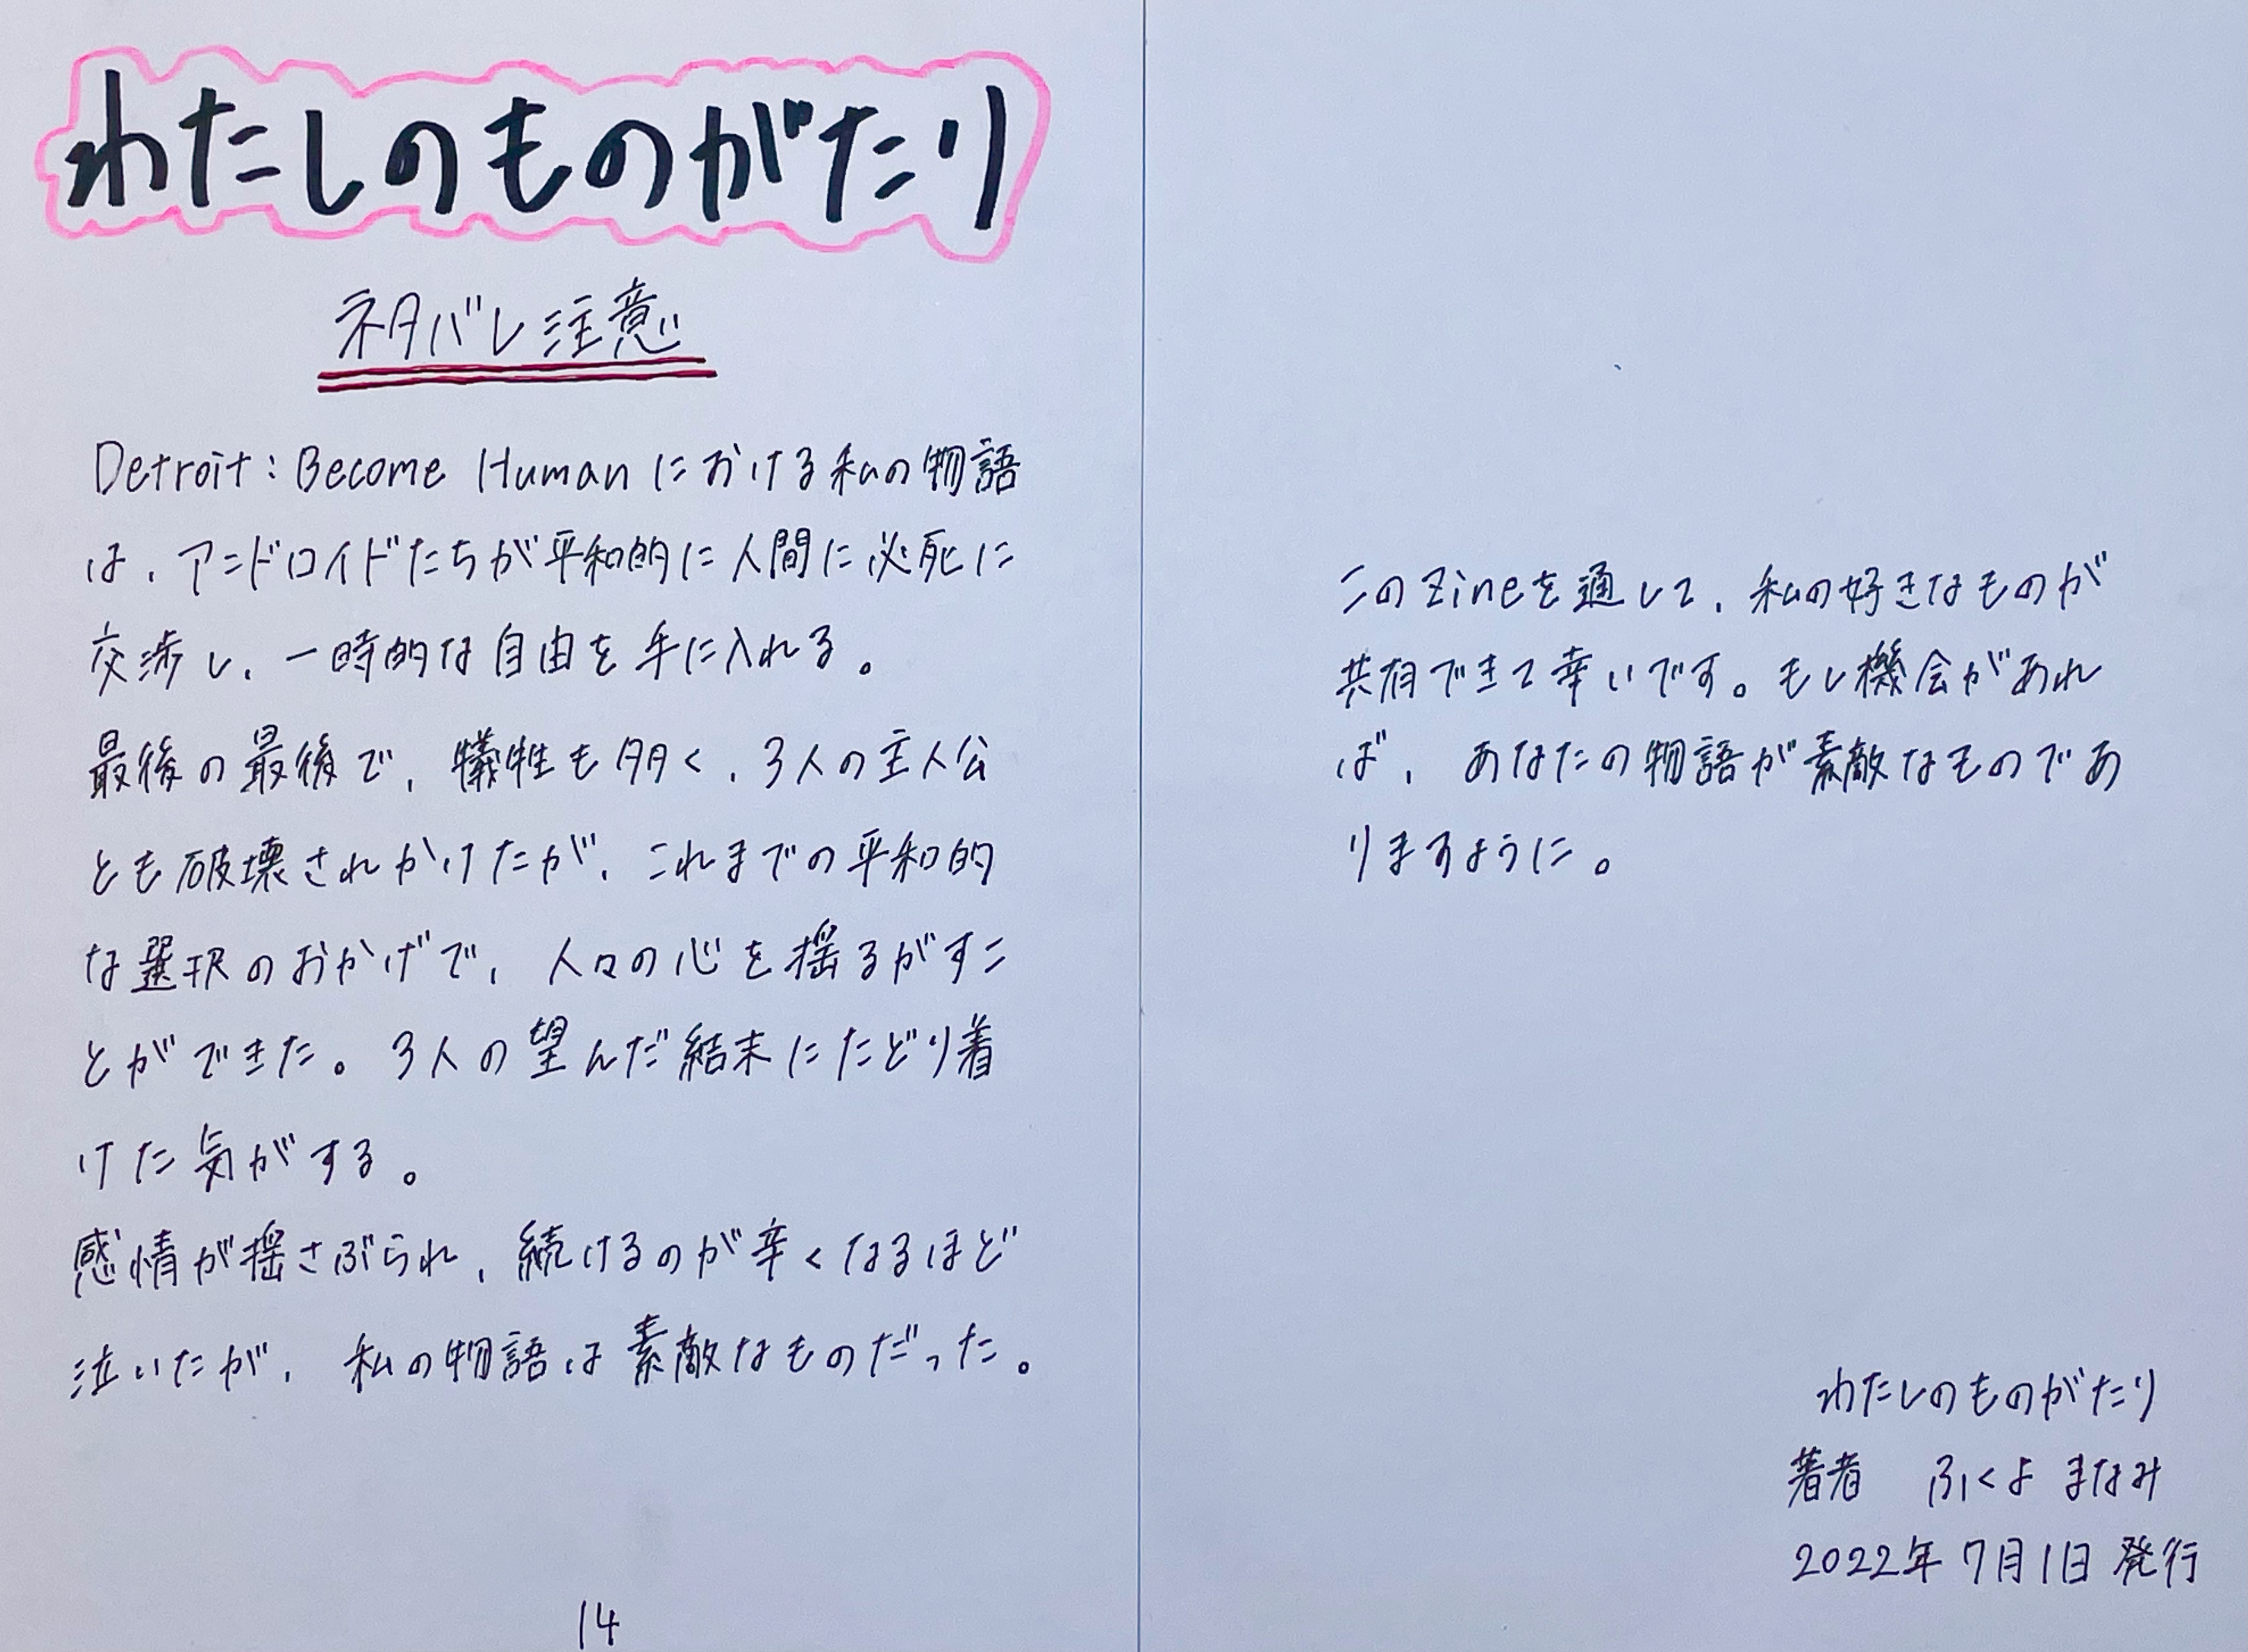 わたしのものがたり
ネタバレ注意
Detroit: Become Human における私の物語
は、アンドロイドたちが平和的に人間に必死に
交渉し、一時的な自由を手に入れる。
最後の最後で、犠牲も多く、3人の主人公
とも破壊されかけたが、これまでの平和的
な選択のおかげで、人々の心を揺るがすこ
とができた。3人の望んだ結末にたどり着
けた気がする。
感情が揺さぶられ、続けるのが辛くなるほど
泣いたが、私の物語は素敵なものだった。
14
このZineを通して、私の好きなものが
共有できて幸いです。もし機会があれ
ば、あなたの物語が素敵なものであ
りますように。
わたしのものがたり
著者 ふくよ まなみ
2022年7月1日発行